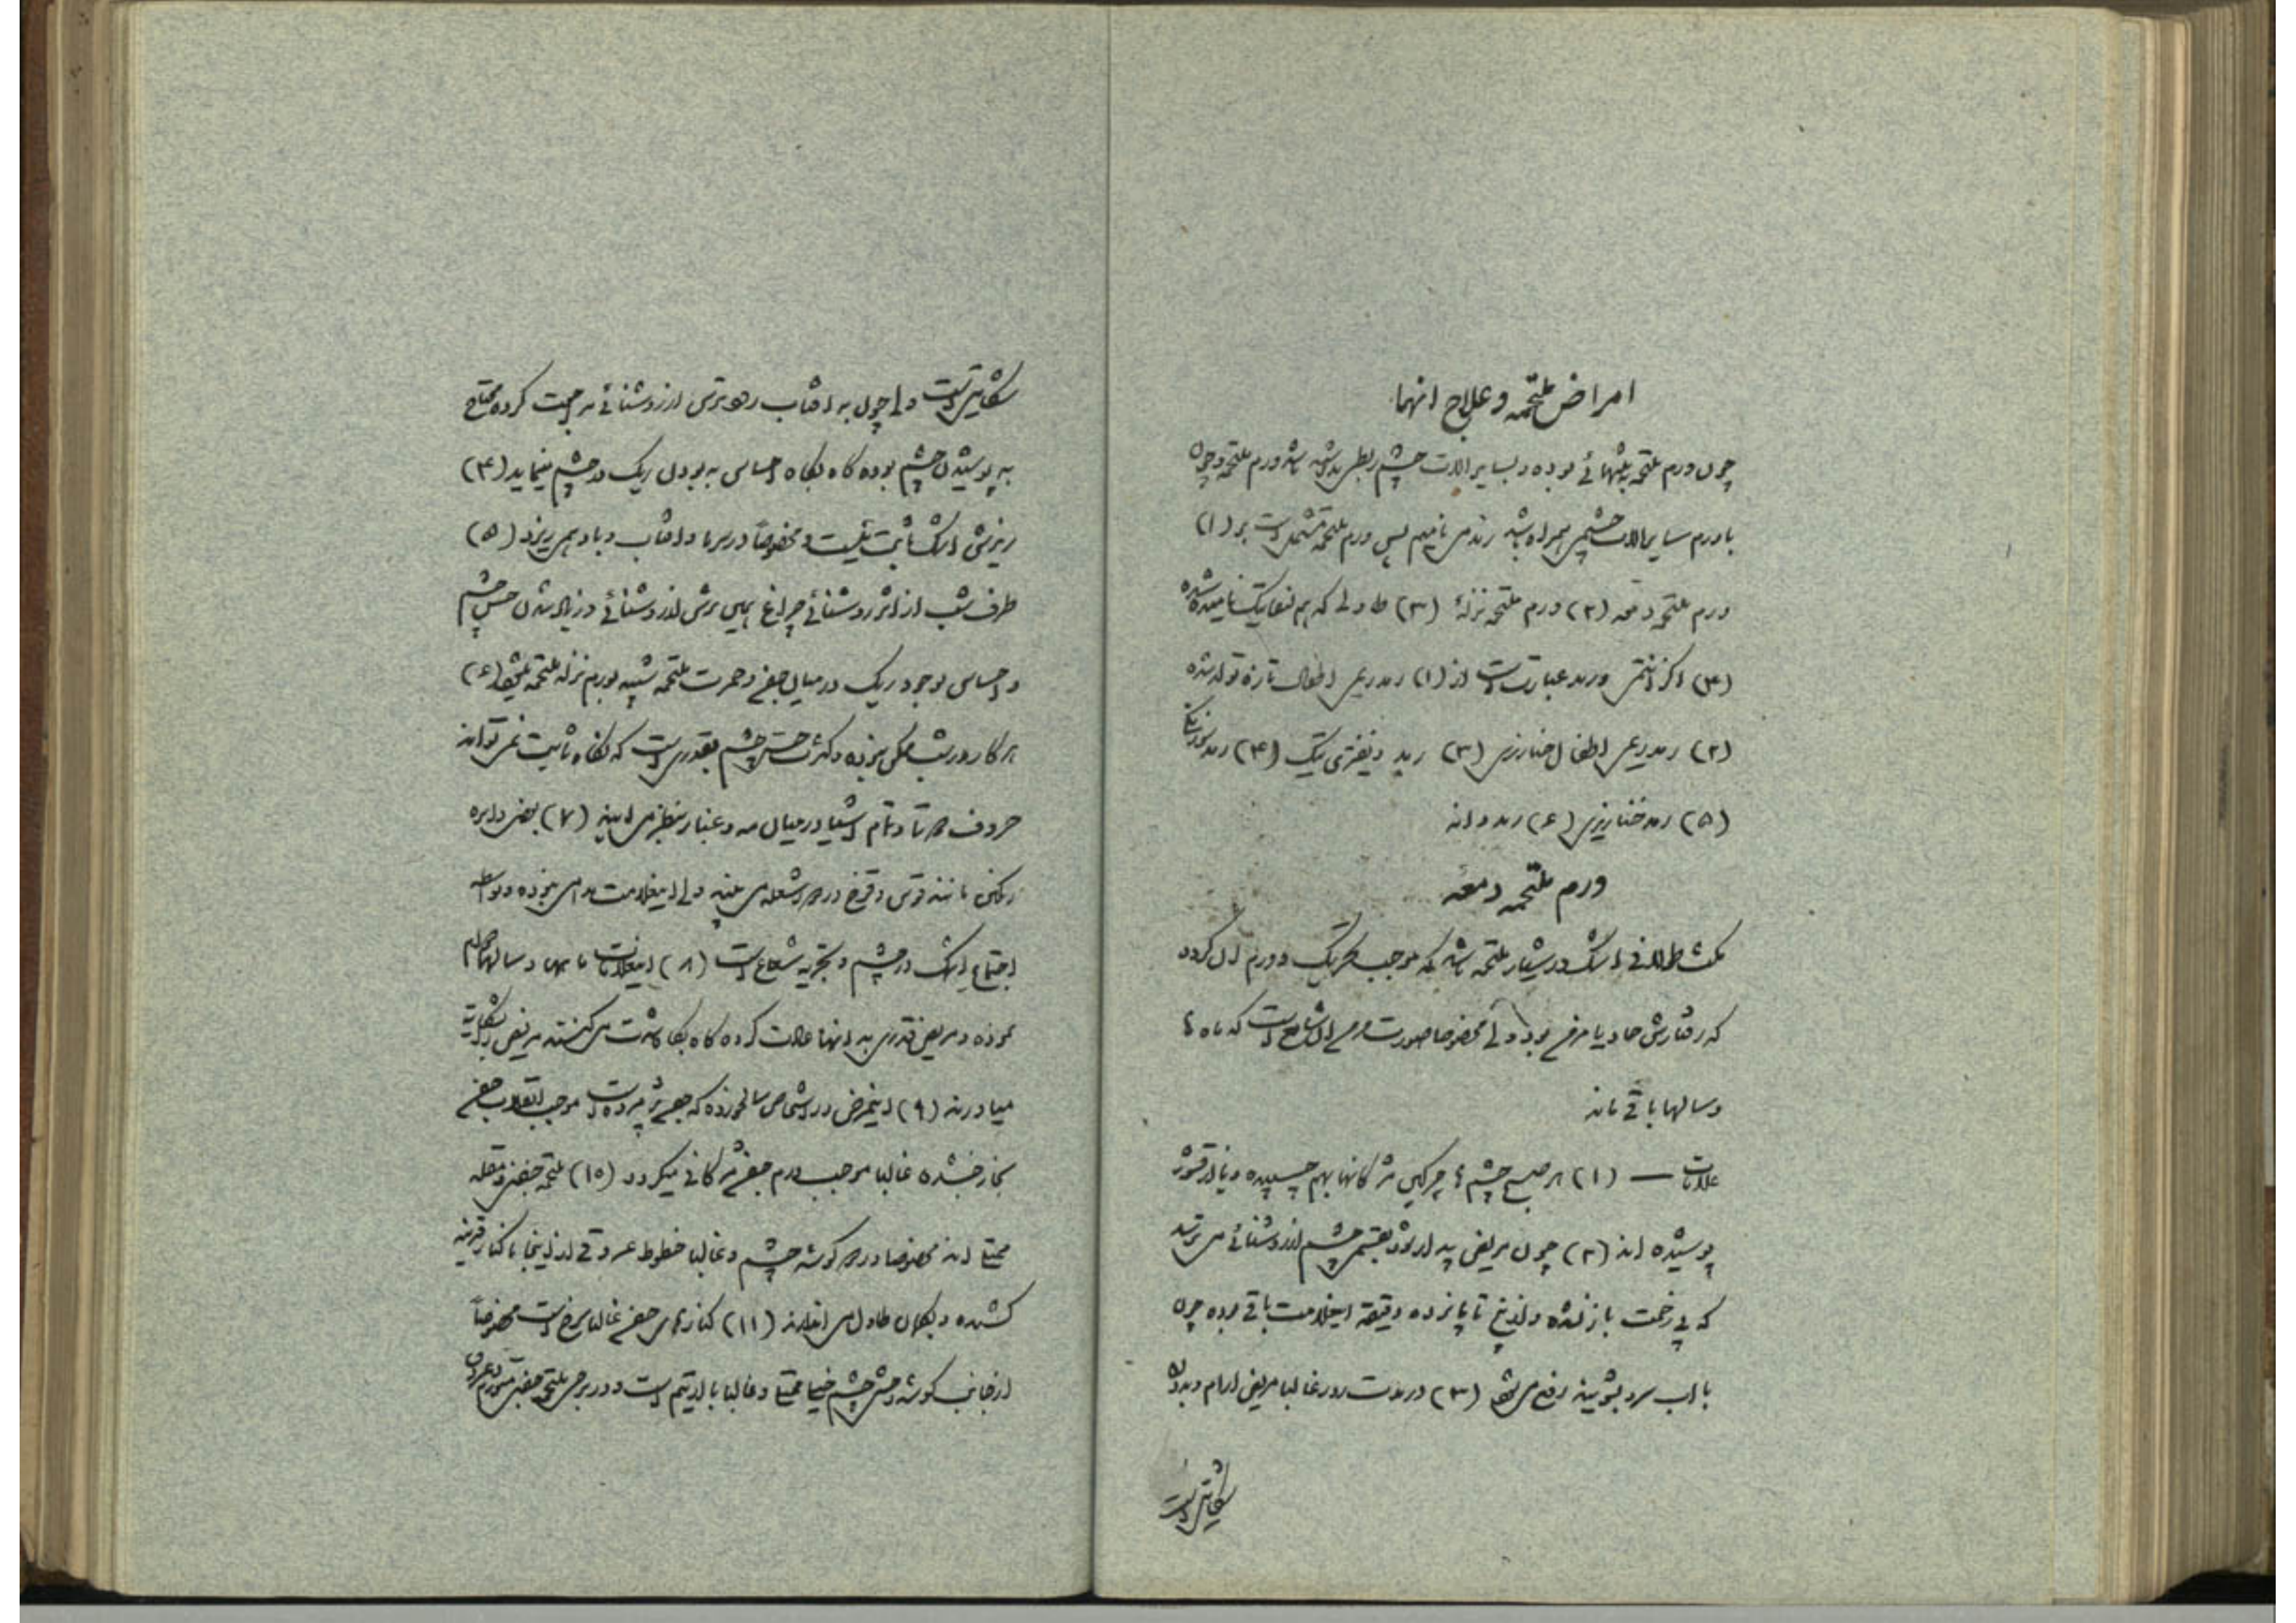 امراض ملتحمه و علاج انها
چون ورم ملتحمه به تنهائی بوده و بسایر الات چشم ربطی نداشته باشد ورم ملتحمه و چون
با ورم سایر الات چشم همراه باشد رمد می نامیم پس ورم ملتحمه مشتمل است بر (۱)
ورم ملتحمه دمعه (۲) ورم ملتحمه نزلهٔ (۳) که هم نامیده شده
(۴) و رمد عبارت است از (۱) رمد ریمی اطفال تازه تولد شده
(۲) رمد ریمی اطفال خنازیری (۳) رمد دیفتری تیک (۴) رمد
(۵) رمد خنازیری (۶) رمد دانه
ورم ملتحمه دمعه
مکث طولانی اشک در شیار ملتحمه باشد که موجب تحریک و ورم ان گردد
که رفتارش حاد یا مزمن بوده ولی مخصوصا صورت مزمن ان شایع است که ماه ها
و سالها باقی ماند
علامات — (۱) هر صبح چشم ها چرکین مژگانها بهم چسبیده و با از قشور
پوشیده اند (۲) چون مریض بیدار شود بقسمی چشم از روشنائی می ترسد
که بی زحمت باز نشده و تا پانزده دقیقه اینعلامت باقی بوده چون
با اب سرد بشویند رفع می شود (۳) در مدت روز غالبا مریض ارام و بدون
شکایت است
شکایت است ولی چون به افتاب رود ترس از روشنائی مراجعت کرده محتاج
به پوشیدن چشم بوده گاه بگاه احساس به بودن ریگ در چشم مینماید (۴)
ریزش اشک ثابت نیست و مخصوصاً در سرما و افتاب و باد می ریزد (۵)
طرف شب از اثر روشنائی چراغ همین ترس از روشنائی و زیاد شدن حس چشم
و احساس بوجود ریگ در میان جفن و حمرت ملتحمه شبیه بورم نزله ملتحمه میشود (۶)
هر کار در شب ممکن نبوده و کثرت حس چشم بقدری است که نگاه ثابت نمی تواند
حروف و تمام اشیا در میان مه و غبار بنظر می ایند (۷) بعضی دایره
رنگین مانند قوس و قزح در شعله می بینند ولی اینعلامت مدامی نبوده و بواسطه
اجتماع اشک در چشم و تجزیه شعاع است (۸) اینعلامات ماهها و سالها مداوم
بوده و مریض قدری به انها عادت کرده گاه بگاه شدت می کنند مریض را بشکایت
میاورند (۹) اینمرض در اشخاص سالخورده که جفن پژمرده است موجب انقلاب جفن
بخارج شده غالبا موجب ورم جفن مژگانی میگردد (۱۰) ملتحمه جفن و مقله
ممتلی اند مخصوصا در گوشه چشم و غالبا خطوط عروقی از اینجا تا کنار قرنیه
کشیده و بطول می افتد (۱۱) کنارهای جفن غالبا سرخ است مخصوصاً
از جانب گوشه وحشی چشم ممتلی و غالبا با است و در برخی ملتحمه جفن متورم و عروق